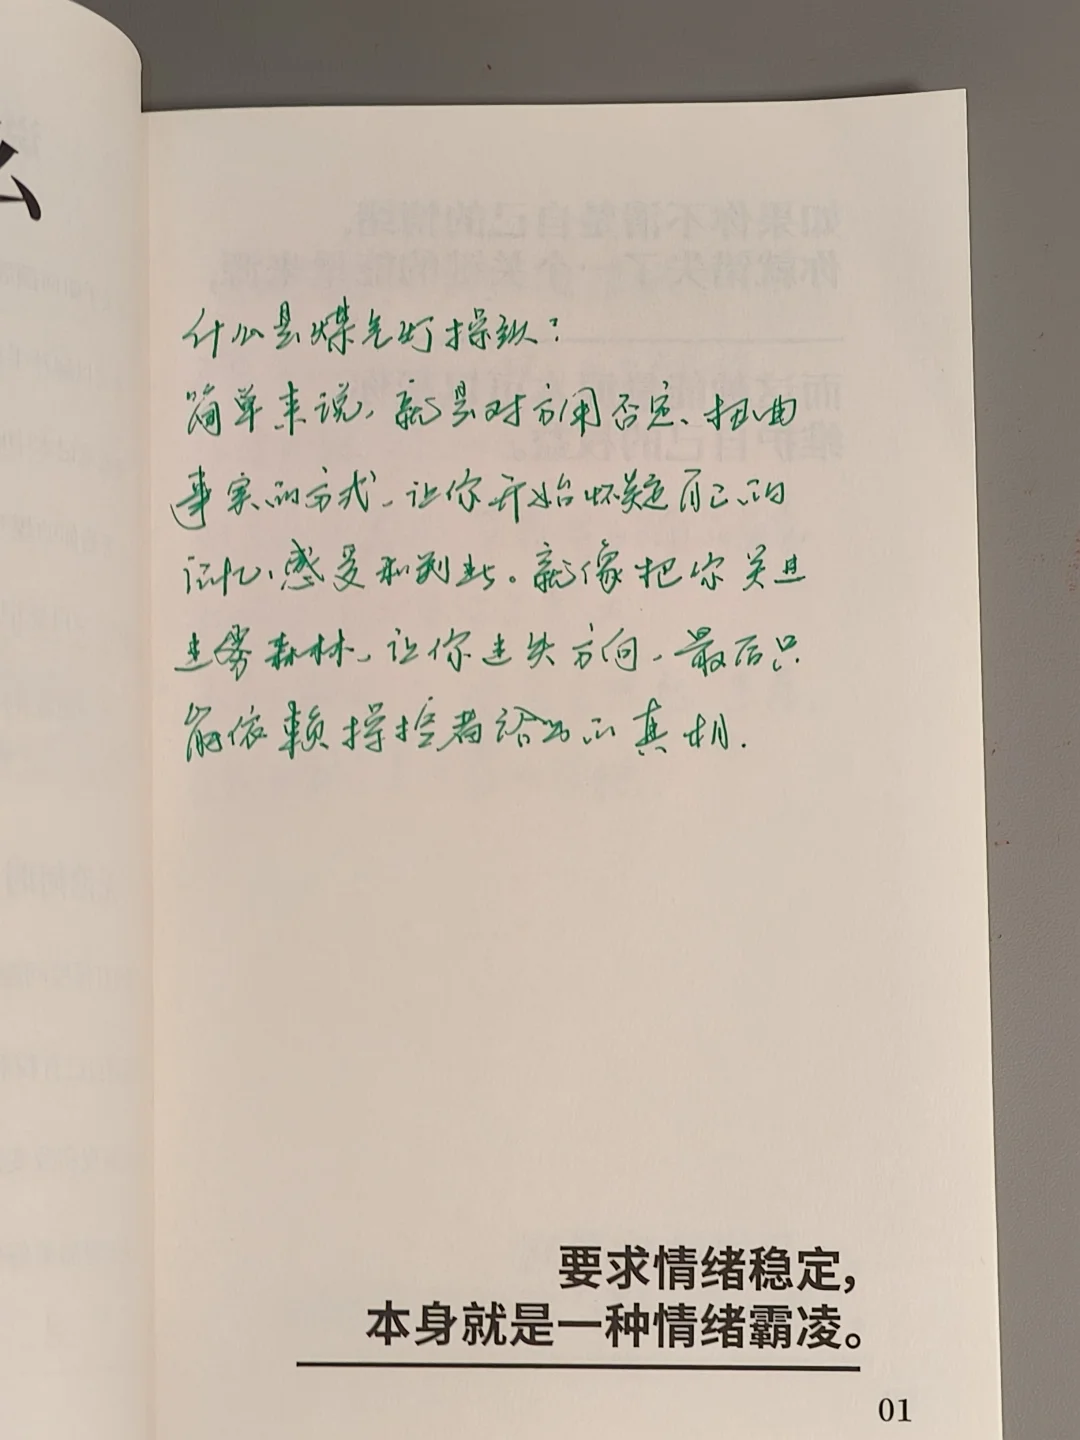 么
什么是煤气灯操纵？
简单来说，就是对方用否定、扭曲
事实的方式，让你开始怀疑自己的
记忆、感受和判断。就像把你关进
迷雾森林，让你迷失方向，最后只
能依赖操控者给出的真相.
要求情绪稳定,
本身就是一种情绪霸凌。
01